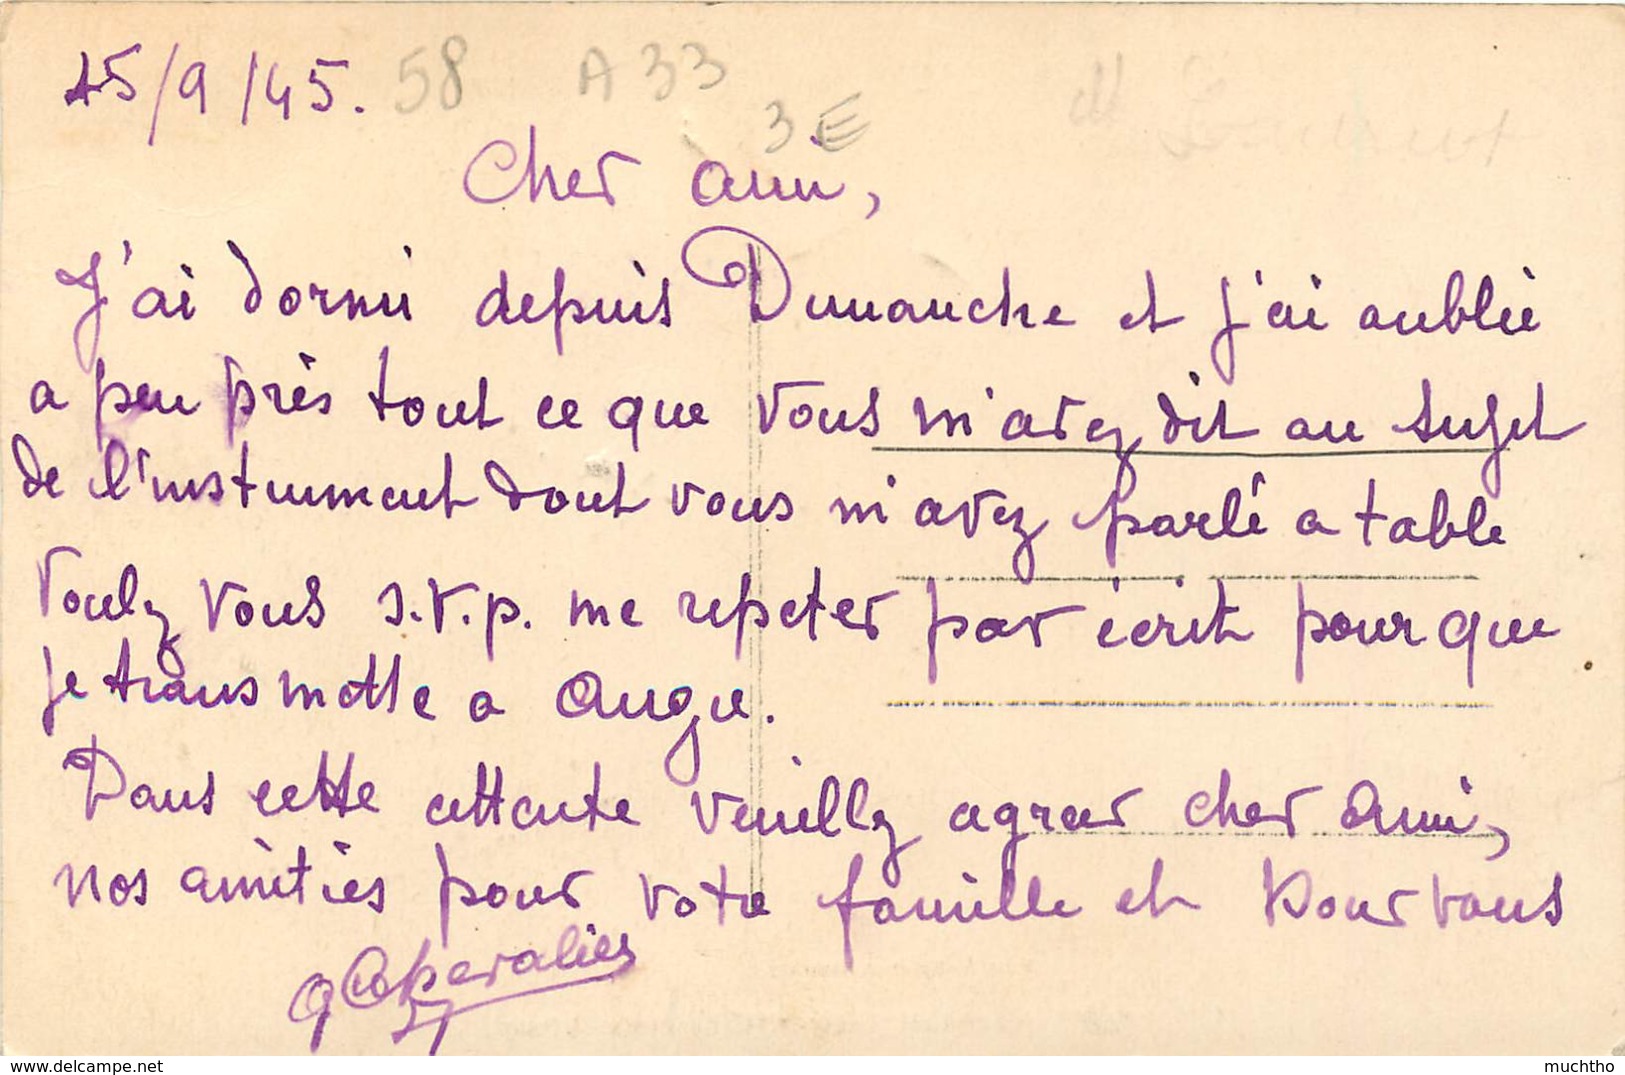 15/9/45. 58 A 33
3 €
Cher ami,
J'ai dormi depuis Dimanche et j'ai oublié
a peu près tout ce que vous m'avez dit au sujet
de l'instrument dont vous m'avez parlé a table
Voulez vous s.v.p. me repeter par écrit pour que
je transmette a Ange.
Dans cette attente veuillez agréer cher Ami,
nos amitiés pour votre famille et pour vous
Chevalier
muchtho